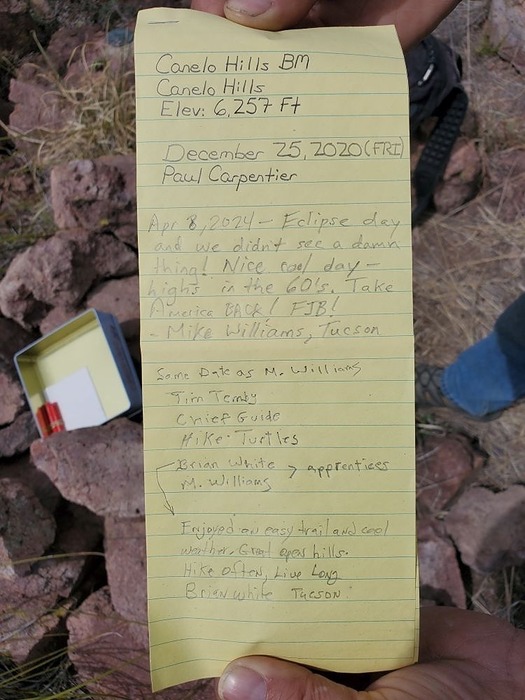 Canelo Hills BM
Canelo Hills
Elev: 6,257 Ft
December 25, 2020 (FRI)
Paul Carpentier
Apr 8, 2024 – Eclipse day
and we didn't see a damn
thing! Nice cool day –
highs in the 60's. Take
America BACK! FJB!
- Mike Williams, Tucson
Same Date as M. Williams
Tim
Chief Guide
Hike Turtles
Brian White > apprentices
M. Williams
Enjoyed an easy trail and cool
weather. Great open hills.
Hike often, Live Long
Brian White Tucson